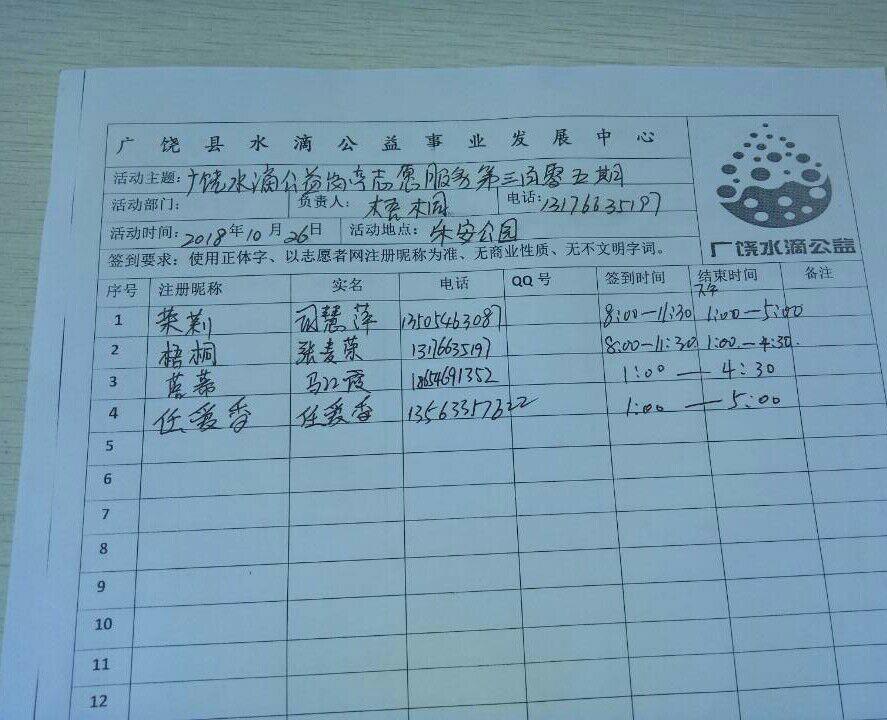 广饶县水滴公益事业发展中心
活动主题:广饶水滴公益岗亭志愿服务第三百零五期
活动部门: 负责人:梧桐 电话:13176635197
活动时间:2018年10月26日 活动地点:乐安公园
广饶水滴公益
签到要求:使用正体字、以志愿者网注册昵称为准、无商业性质、无不文明字词。
序号 注册昵称 实名 电话 QQ号 签到时间 结束时间 备注
下午
1 茉莉 司慧萍 13505463087 8:00—11:30 1:00—5:00
2 梧桐 张麦荣 13176635197 8:00—11:30 1:00—4:30.
3 马红霞 18654691352 1:00—4:30
4 任爱香 任爱香 13563357622 1:00—5:00
5
6
7
8
9
10
11
12